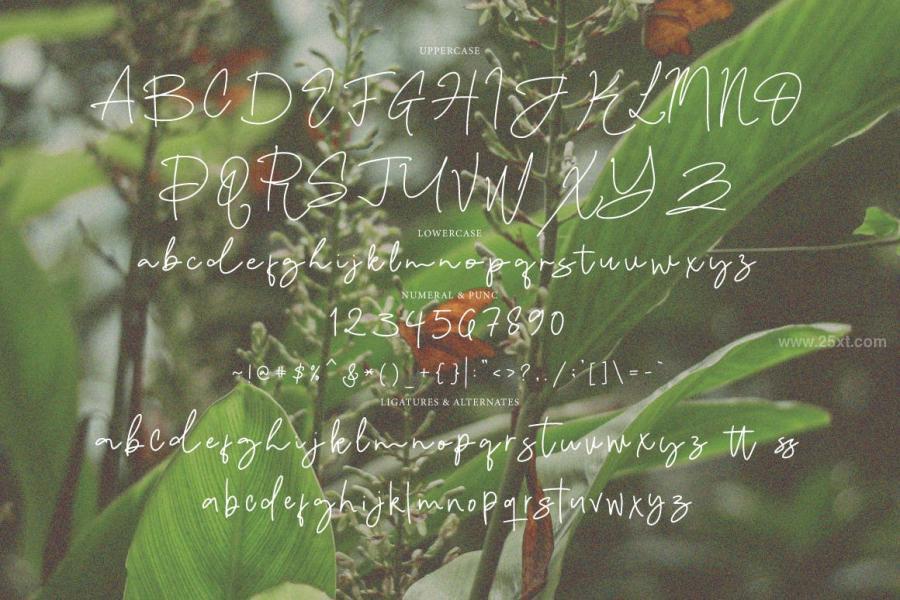 UPPERCASE
ABCDEFGHIJKLMNO
PQRSTUVWXYZ
LOWERCASE
abcdefghijklmnopqrstuvwxyz
NUMERAL & PUNC
1234567890
~!@#$%^&*()_+{}|:"<>?,./;'[]\=-`
www.25xt.com
LIGATURES & ALTERNATES
abcdefghijklmnopqrstuvwxyz tt ss
abcdefghijklmnopqrstuvwxyz